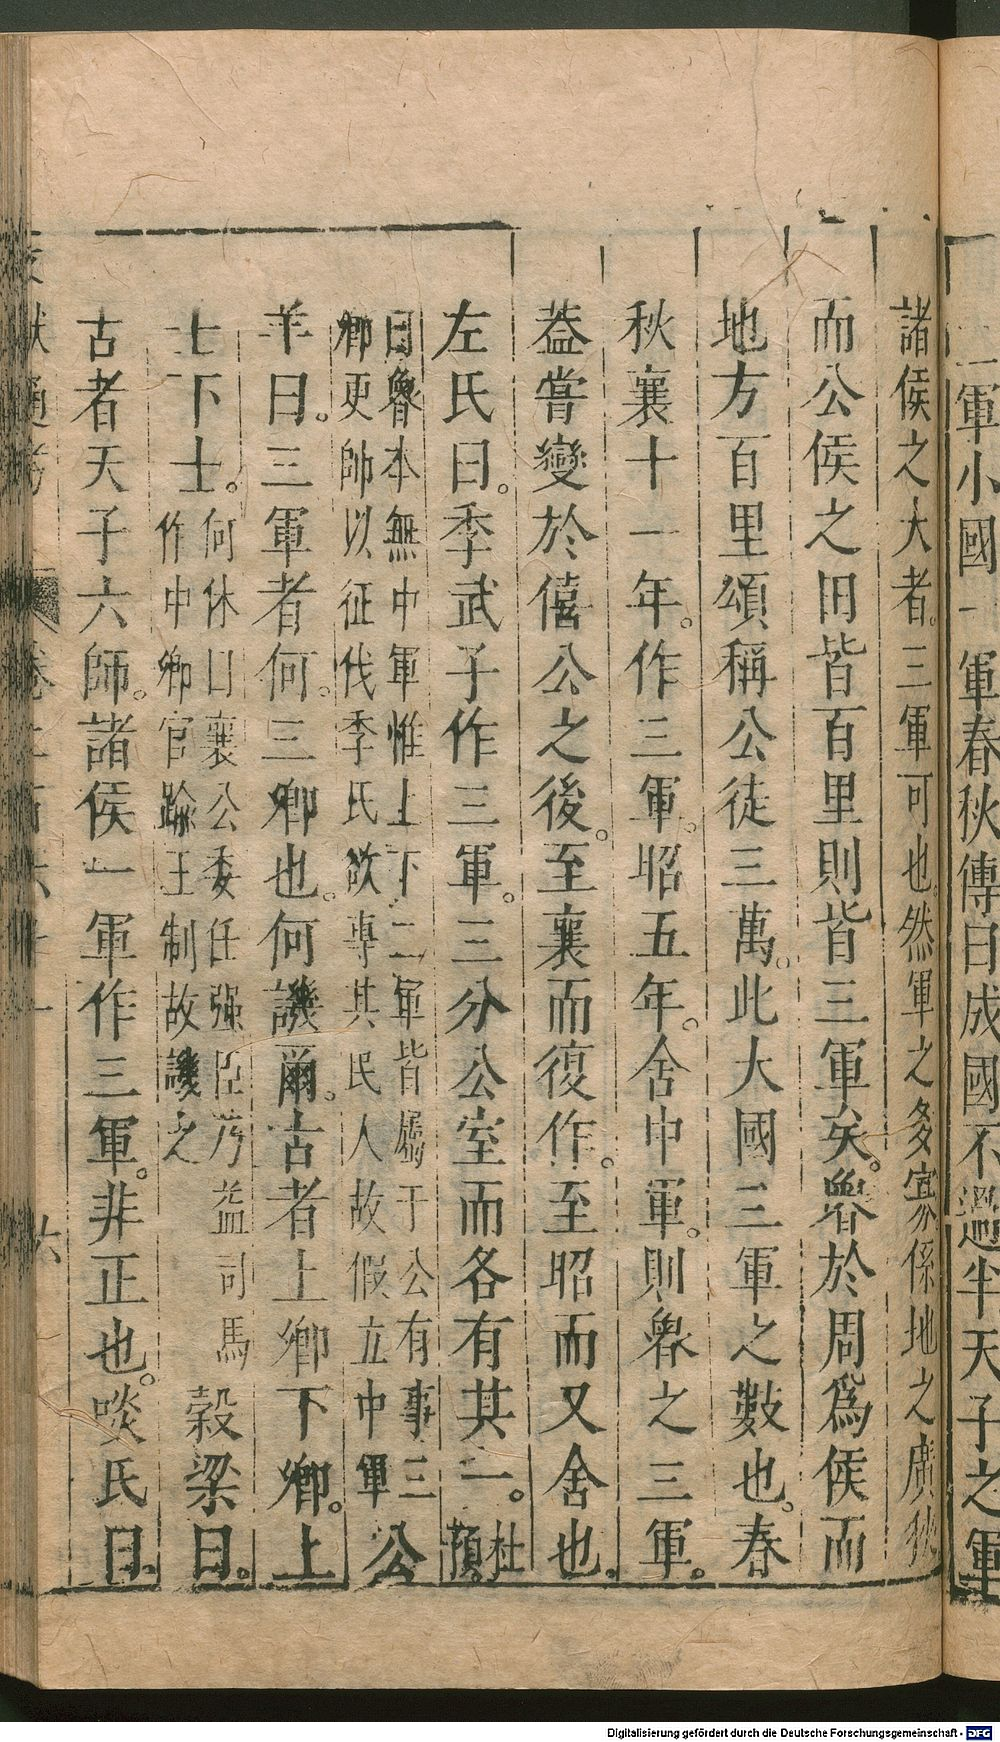 二軍小國一軍春秋傳曰成國不過半天子之軍
諸侯之大者。三軍可也。然軍之多寡係地之廣狹
而公侯之田皆百里則皆三軍矣。魯於周爲侯而
地方百里頌稱公徒三萬。此大國三軍之數也。春
秋襄十一年。作三軍。昭五年。舍中軍。則魯之三軍。
蓋嘗變於僖公之後。至襄而復作。至昭而又舍也。
左氏曰。季武子作三軍。三分公室而各有其一。杜預。
曰魯本無中軍惟上下二軍皆屬于公有事三
卿更帥以征伐季氏欲專其民人故假立中軍 公
羊曰。三軍者何。三卿也。何譏爾。古者上卿下卿。上
士下士。何休曰襄公委任强臣乃益司馬
作中卿官踰王制故譏之 穀梁曰。
古者天子六師。諸侯一軍作三軍。非正也。啖氏曰。
文獻通考 卷 六
Digitalisierung gefördert durch die Deutsche Forschungsgemeinschaft - DFG